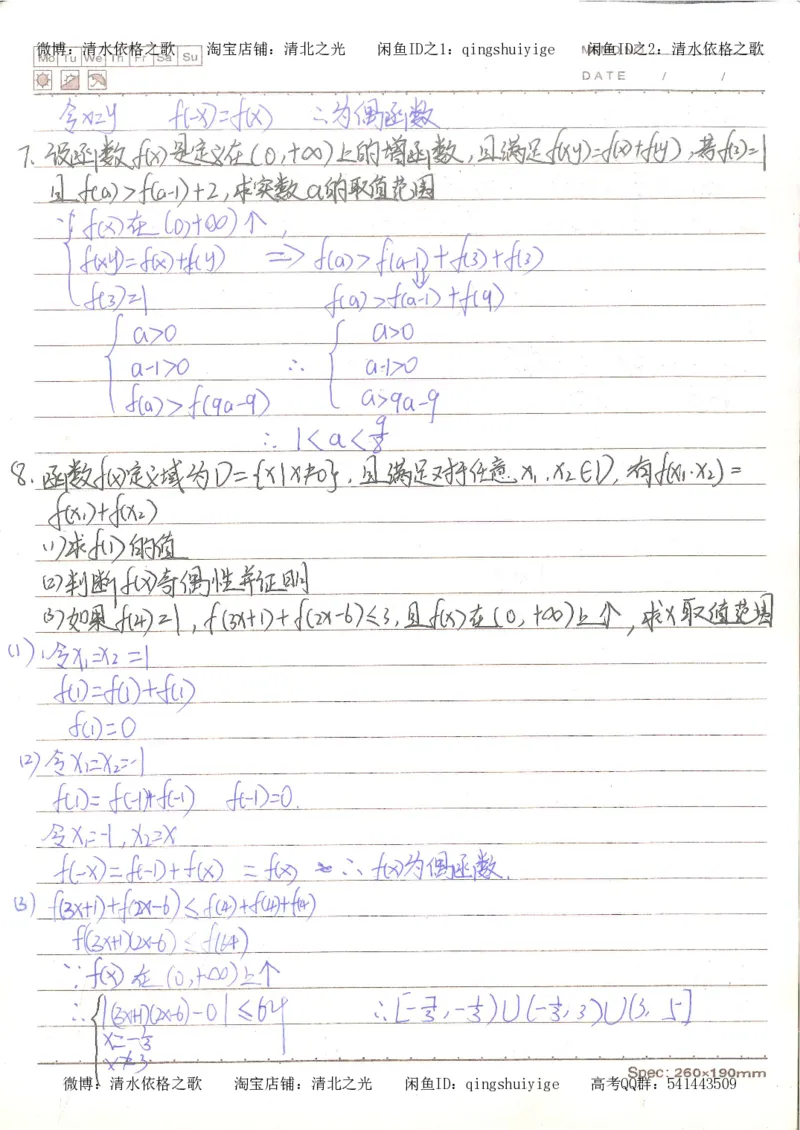 微博：清水依格之歌 淘宝店铺：清北之光 闲鱼ID之1：qingshuiyige 闲鱼ID之2：清水依格之歌
Mo Tu We Th Fr Sa Su
DATE / /
令x=y f(-x)=f(x) ∴为偶函数
7. 设函数f(x)是定义在(0,+∞)上的增函数,且满足f(xy)=f(x)+f(y),若f(3)=1
且f(a)>f(a-1)+2,求实数a的取值范围
∵ f(x)在(0,+∞)↑,
f(xy)=f(x)+f(y) => f(a)>f(a-1)+f(3)+f(3)
f(3)=1 f(a)>f(a-1)+f(9)
a>0 a>0
a-1>0 ∴ a-1>0
f(a)>f(9a-9) a>9a-9
∴ 1<a<9/8
8. 函数f(x)定义域为D={x|x≠0},且满足对于任意x₁,x₂∈D,有f(x₁·x₂)=
f(x₁)+f(x₂)
(1)求f(1)的值
(2)判断f(x)奇偶性并证明
(3)如果f(4)=1,f(3x+1)+f(2x-6)≤3,且f(x)在(0,+∞)上↑,求x取值范围
(1)、令x₁=x₂=1
f(1)=f(1)+f(1)
f(1)=0
(2)令x₁=x₂=-1
f(1)=f(-1)+f(-1) f(-1)=0.
令x₁=-1,x₂=x
f(-x)=f(-1)+f(x) =f(x) ∴f(x)为偶函数.
(3) f(3x+1)+f(2x-6)≤f(4)+f(4)+f(4)
f(3x+1)(2x-6)≤f(64)
∵f(x)在(0,+∞)上↑
∴ |(3x+1)(2x-6)-0|≤64 ∴[-7/3,-1/3)∪(-1/3,3)∪(3,5]
x=-1/3
x≠3
Spec: 260×190mm
微博：清水依格之歌 淘宝店铺：清北之光 闲鱼ID：qingshuiyige 高考QQ群：541443509